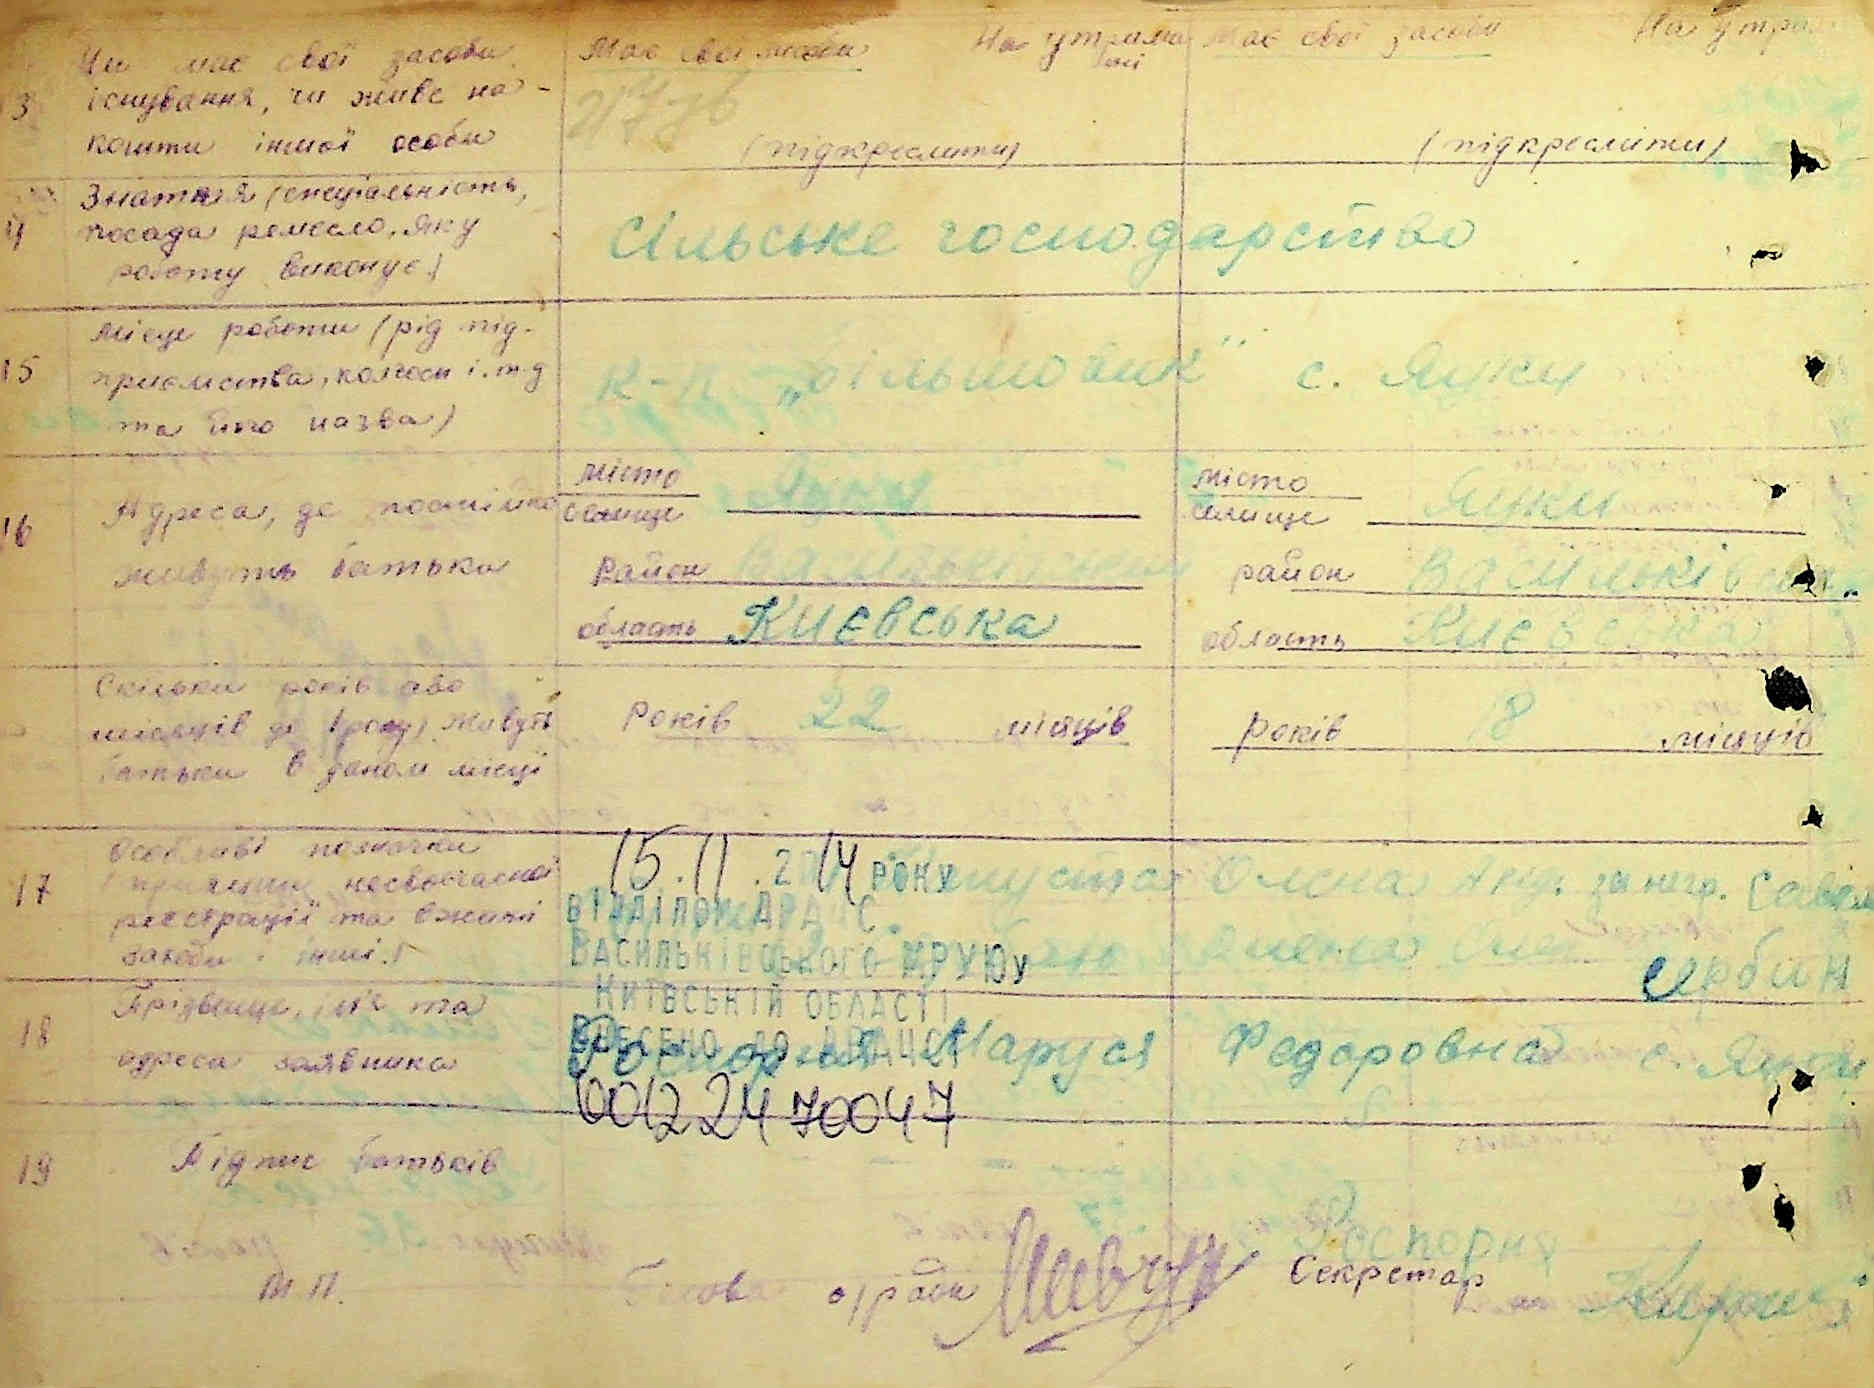 13 Чи має свої засоби Має свої засоби На утриманні Має свої засоби На утри
існування, чи живе на
кошти іншої особи (підкреслити) (підкреслити)
14 Знаття (спеціальність,
посада ремесло, яку Сільське господарство
роботу виконує)
15 Місце роботи (рід під-
приємства, колгосп і.т.д К-п „Більшовик" с. Яцки
та його назва)
16 Адреса, де постійно місто селище Яцки місто селище Яцки
живуть батьки район Васильків район Васильків
область Києвська область Києвська
Скільки років або
місяців до 1 року) живуть Років 22 місяців Років 18 місяців
батьки в даном місці
17 Особливі позначки 15.11.2014 РОКУ Олена
причини несвоєчасної ВІДДІЛОМ ДРАЦС
реєстрації та вжиті ВАСИЛЬКІВСЬКОГО МРУЮ У Олена Сербин
засоби інші.) КИЇВСЬКІЙ ОБЛАСТІ
18 Прізвище, ім'я та ВНЕСЕНО ДО ДРАЦСГ
адреса заявника Роспорня Маруся Федоровна с. Яцки
00122470047
19 Підпис батьків
Роспорня
М.П. Голова с/ради Шевчук Секретар